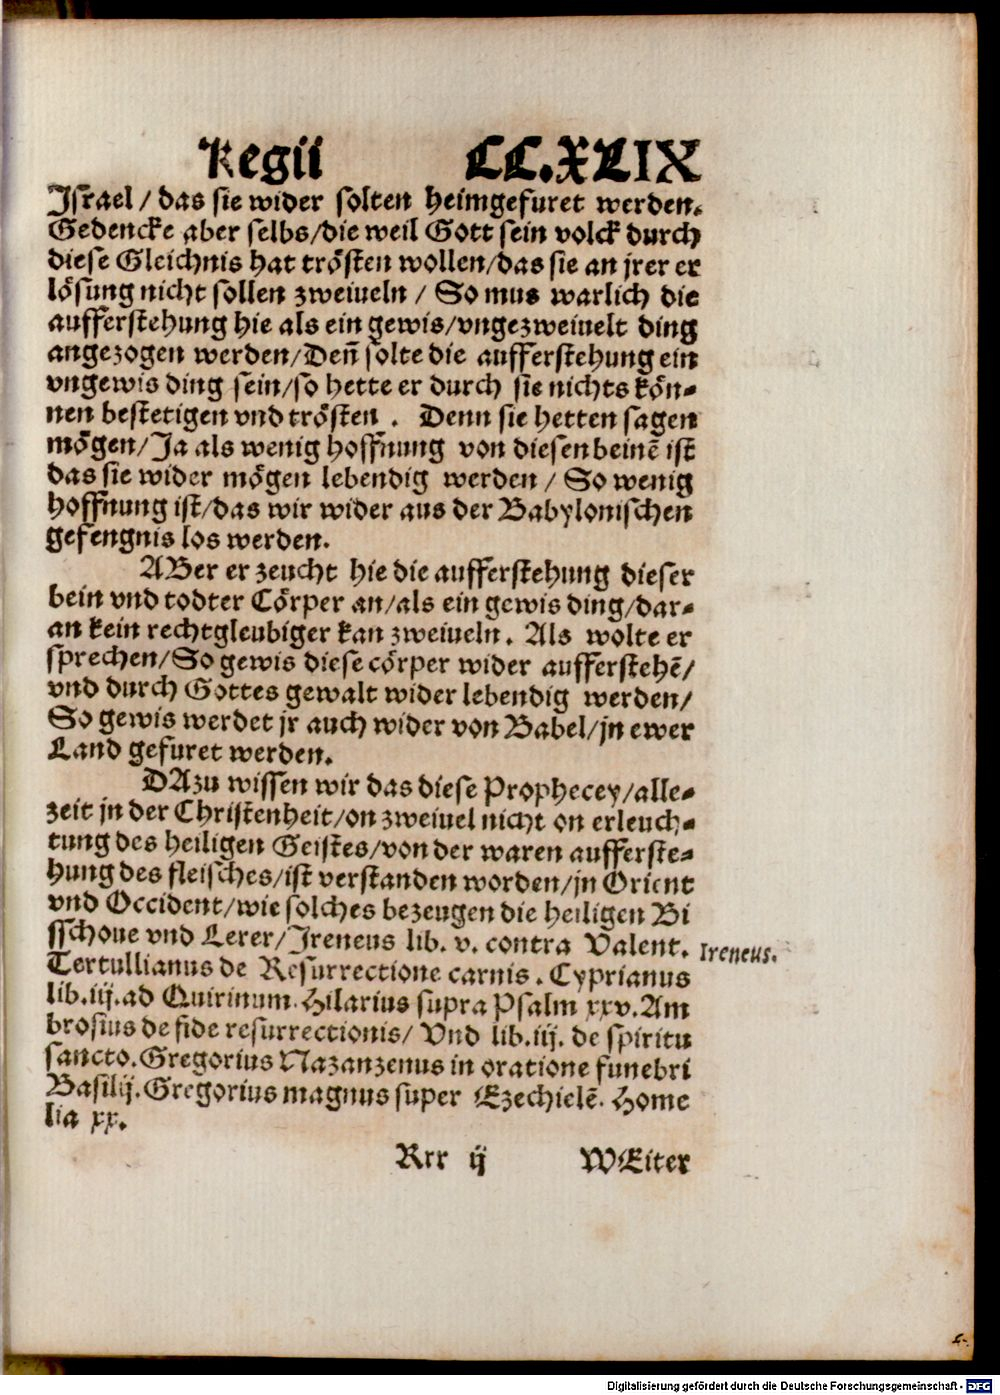 Regii CC.XLIX
Israel / das sie wider solten heimgefuret werden.
Gedencke aber selbs/die weil Gott sein volck durch
diese Gleichnis hat trösten wollen/das sie an jrer er
lösung nicht sollen zweiueln / So mus warlich die
aufferstehung hie als ein gewis/vngezweiuelt ding
angezogen werden/Deñ solte die aufferstehung ein
vngewis ding sein/so hette er durch sie nichts kön-
nen bestetigen vnd trösten . Denn sie hetten sagen
mögen/Ja als wenig hoffnung von diesen beinē ist
das sie wider mögen lebendig werden / So wenig
hoffnung ist/das wir wider aus der Babylonischen
gefengnis los werden.
ABer er zeucht hie die aufferstehung dieser
bein vnd todter Cörper an/als ein gewis ding/dar-
an kein rechtgleubiger kan zweiueln. Als wolte er
sprechen/So gewis diese cörper wider aufferstehē/
vnd durch Gottes gewalt wider lebendig werden/
So gewis werdet jr auch wider von Babel/jn ewer
Land gefuret werden.
DAzu wissen wir das diese Prophecey/alle-
zeit jn der Christenheit/on zweiuel nicht on erleuch-
tung des heiligen Geistes/von der waren aufferste-
hung des fleisches/ist verstanden worden/jn Orient
vnd Occident/wie solches bezeugen die heiligen Bi
sschoue vnd Lerer/Ireneus lib. v. contra Valent.
Ireneus.
Tertullianus de Resurrectione carnis. Cyprianus
lib.iij.ad Quirinum. Hilarius supra Psalm xxv.Am
brosius de fide resurrectionis/ Vnd lib.iij. de spiritu
sancto.Gregorius Nazanzenus in oratione funebri
Basilij.Gregorius magnus super Ezechielē. Home
lia xx.
Rrr ij WEiter
Digitalisierung gefördert durch die Deutsche Forschungsgemeinschaft - DFG